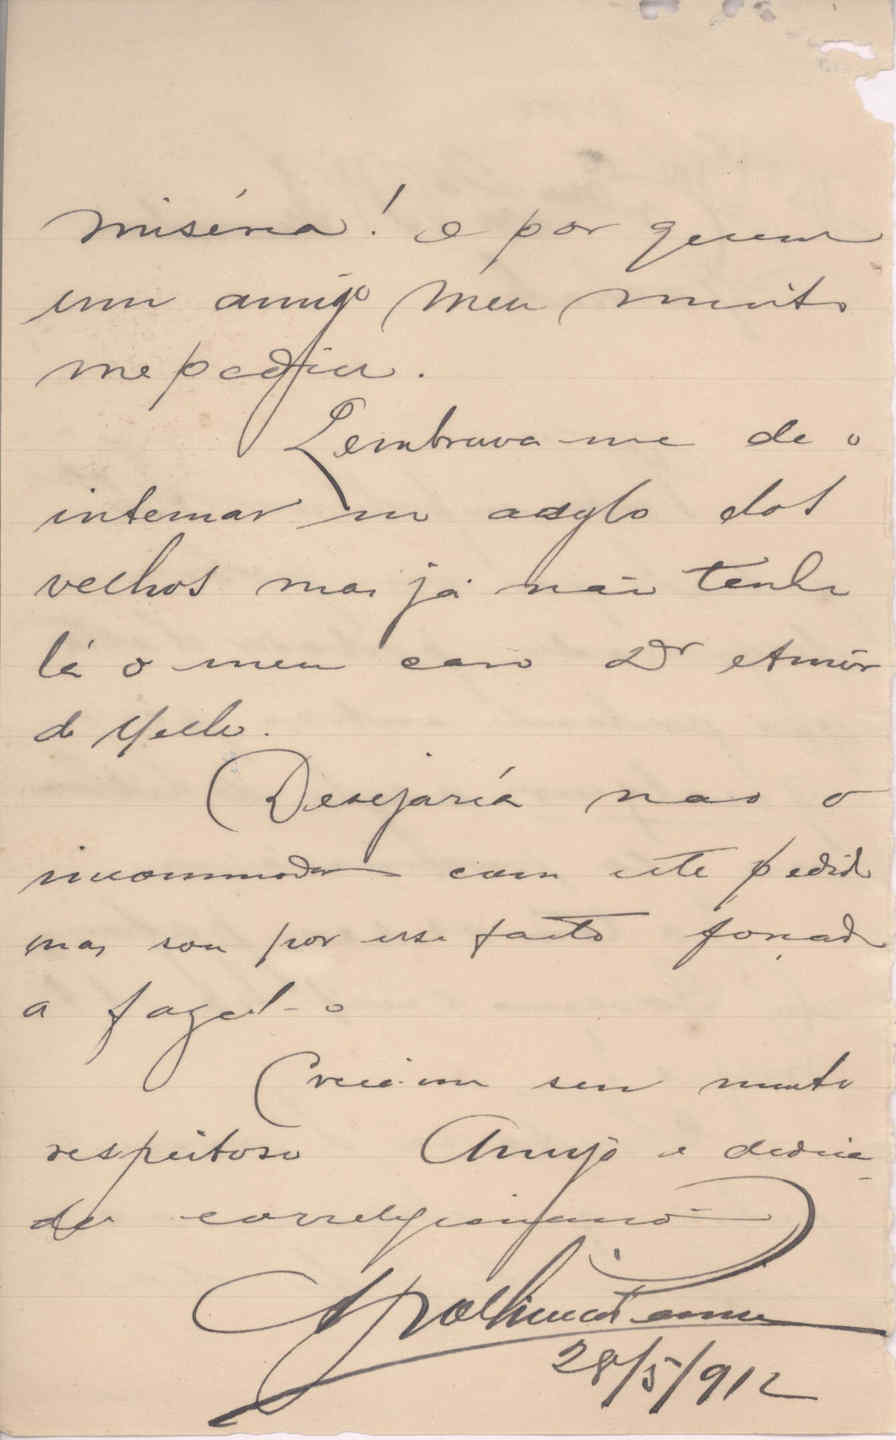 miséria! e por quem
um amigo meu muito
me pediu.
Lembrava-me de o
internar no asylo dos
velhos mas já não tenho
lá o meu caro Dr Amor
de Mello.
Desejaría nao o
incommodar com este pedido
mas sou por esse facto forçado
a fazel-o
Creia-me seu muito
respeitoso Amigo e dedica-
do correligionario
28/5/912